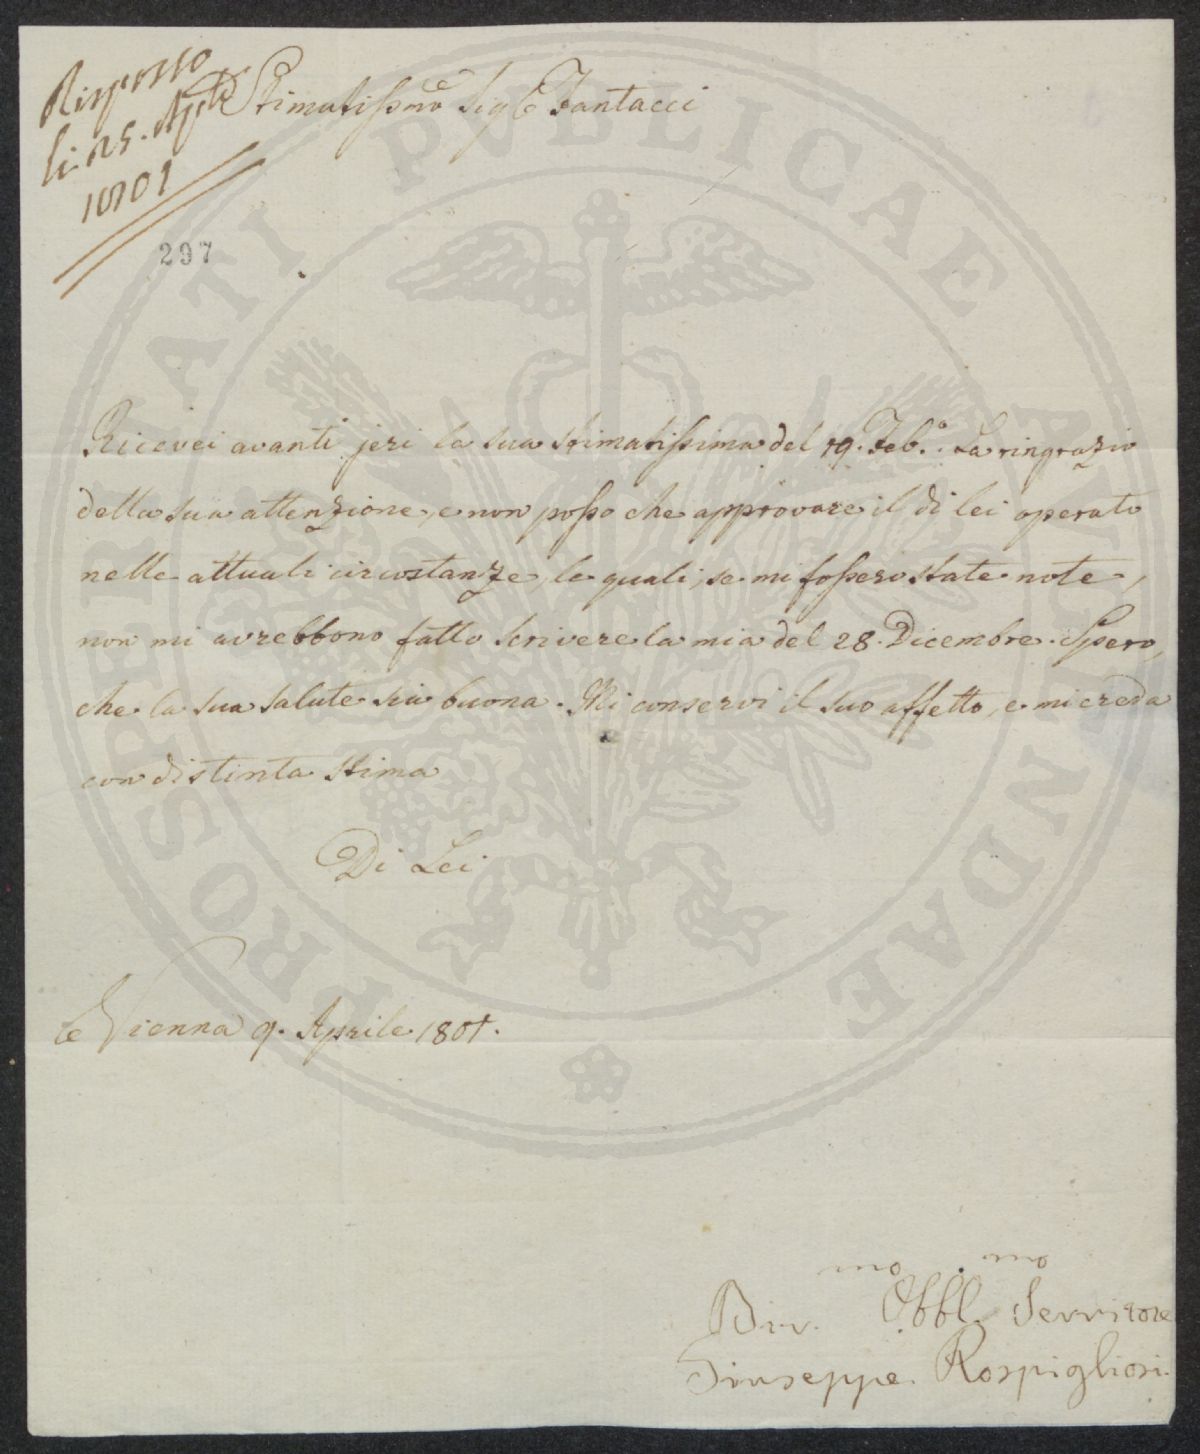 Risposto
li 25. Aple
1801
Stimatissmo Sigre Fantacci
297
Ricevei avanti jeri la sua stimatissima del 19. Febo. La ringrazio
della sua attenzione, e non posso che approvare il di lei operato
nelle attuali circostanze, le quali, se mi fossero state note,
non mi avrebbono fatto scrivere la mia del 28. Dicembre. Spero,
che la sua salute sia buona. Mi conservi il suo affetto, e mi creda
con distinta stima
Di Lei
Vienna 9. Aprile 1801.
Div.mo Obbl.mo Servitore
Giuseppe Rospigliosi
PROSPERITATI PVBLICAE AVGENDAE